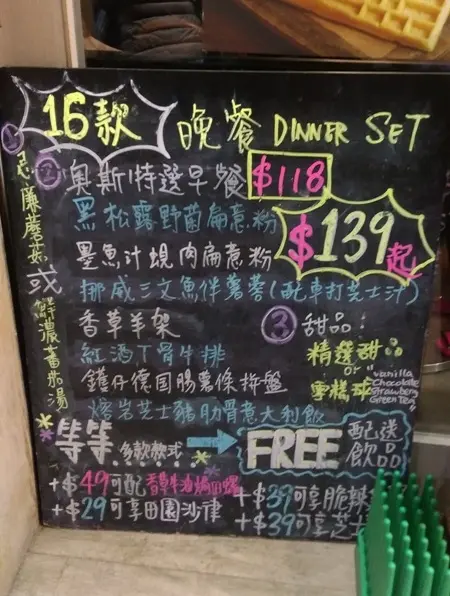 16款 晚餐 DINNER SET
1
忌廉蘑菇
或
濃蕃茄湯
2
奧斯特選早餐 $118
黑松露野菌扁意粉
$139起
墨魚汁蜆肉扁意粉
挪威三文魚伴薯蓉(配車打芝士汁)
香草羊架
3 甜品:
紅酒T骨牛排
精選甜品
or
雪糕球
Vanilla
Chocolate
Strawberry
Green Tea
德国腸薯條拚盤
熔岩芝士豬肋骨意大利飯
等等
多款款式
FREE 配送飲品
+$49可配香草牛油焗田螺
+$29可享田園沙律
+$39可享脆辣
+$39可享芝士